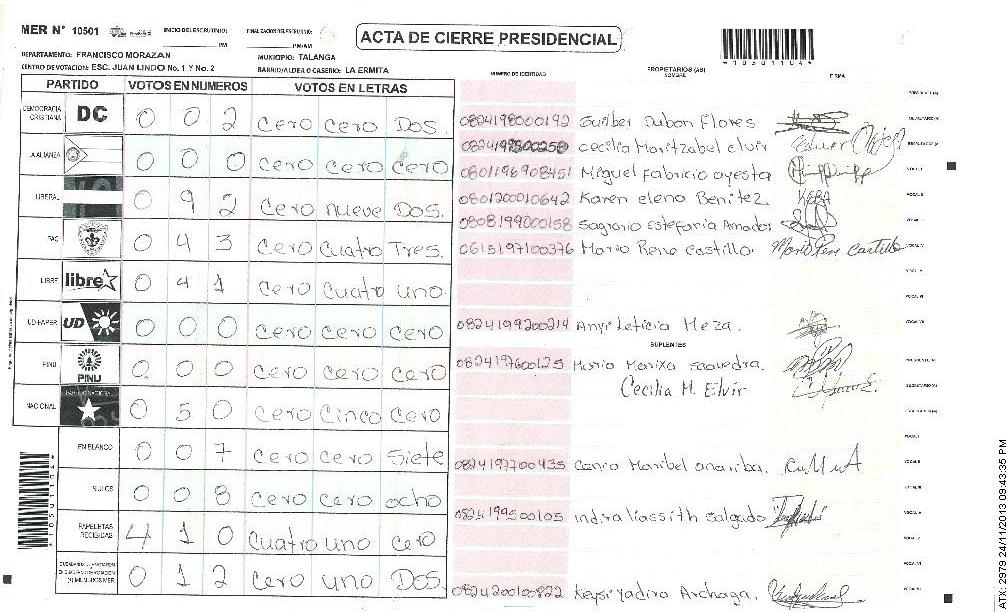 MER N° 10501 INICIO DEL ESCRUTINIO: PM FINALIZACION DEL ESCRUTINIO: PM/AM
ACTA DE CIERRE PRESIDENCIAL
*10501104*
DEPARTAMENTO: FRANCISCO MORAZAN MUNICIPIO: TALANGA
CENTRO DE VOTACION: ESC. JUAN LINDO No. 1 Y No. 2 BARRIO/ALDEA O CASERIO: LA ERMITA
PARTIDO VOTOS EN NUMEROS VOTOS EN LETRAS
DEMOCRACIA CRISTIANA DC 0 0 2 cero cero Dos.
LA ALIANZA 0 0 0 cero cero cero
LIBERAL 0 9 2 cero nueve Dos.
PAC 0 4 3 cero cuatro Tres.
LIBRE libre 0 4 1 cero cuatro uno.
UD-FAPER UD 0 0 0 cero cero cero
PINU PINU 0 0 0 cero cero cero
NACIONAL 0 5 0 cero cinco cero
EN BLANCO 0 0 7 cero cero siete
NULOS 0 0 8 cero cero ocho
PAPELETAS RECIBIDAS 4 1 0 cuatro uno cero
0 1 2 cero uno Dos.
NUMERO DE IDENTIDAD PROPIETARIOS (AS) NOMBRE FIRMA
0824198000192 Guilber Dubon Flores
cecilia Maritzabel elvir
0801196908451 Miguel Fabricio ayesta
0801200010642 Karen elena Benitez.
0808199000158 Sagrario Estefania Amador
0615197100376 Mario Rene Castillo. Mario Rene Castillo
0824199200214 Anyi Leticia Meza.
SUPLENTES
0824197600125 Maria Marixa saavedra.
Cecilia M. Elvir
0824197700435 Maribel
0824199500105 indira salgado
0824200100822 Keysi yadira Archaga.
*10501104*
ATX: 2979 24/11/2013 09:43:35 PM